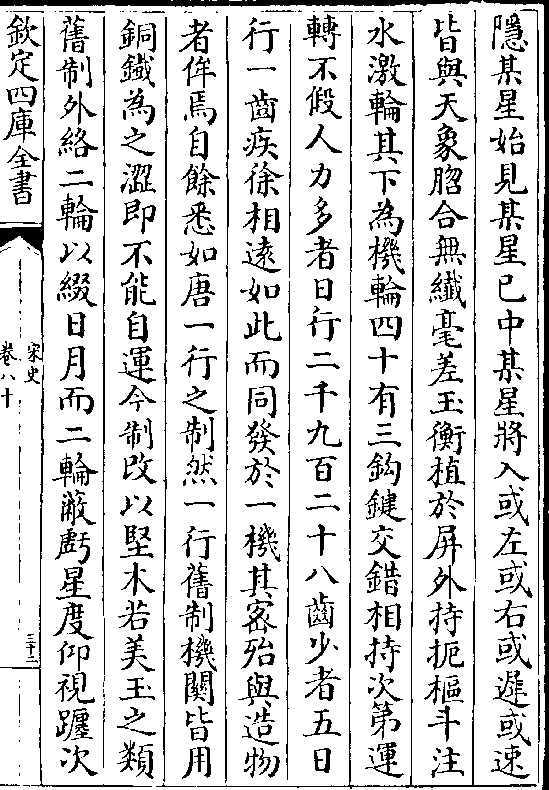 隱某星始見某星已中某星將入或左或右或遲或速
皆與天象脗合無纖毫差玉衡植於屏外持扼樞斗注
水激輪其下為機輪四十有三鈎鍵交錯相持次第運
轉不假人力多者日行二千九百二十八齒少者五日
行一齒疾徐相遠如此而同發於一機其密殆與造物
者侔焉自餘悉如唐一行之制然一行舊制機關皆用
銅鐵為之澀即不能自運今制改以堅木若美玉之類
舊制外絡二輪以綴日月而二輪蔽虧星度仰視躔次
欽定四庫全書
宋史
卷八十
三十二